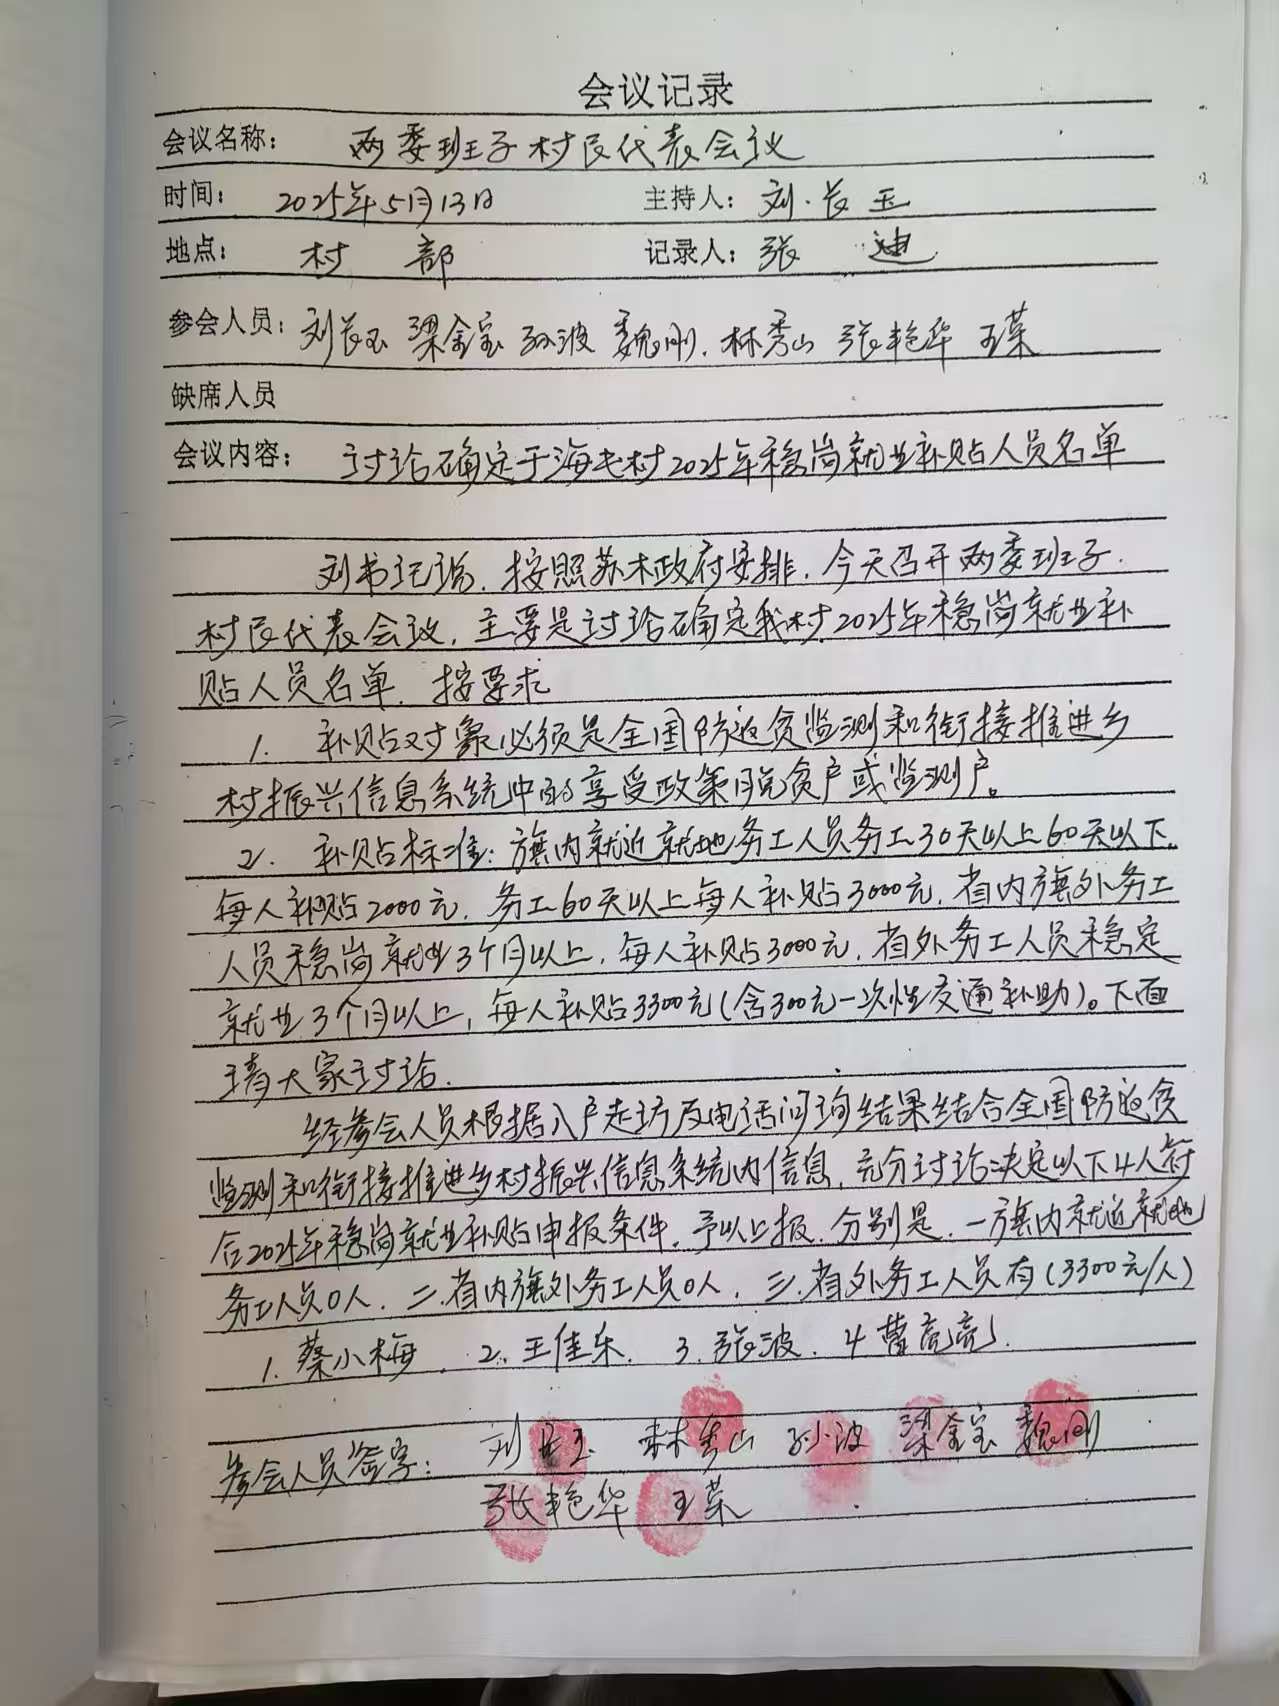 会议记录
会议名称: 两委班子村民代表会议
时间: 2025年5月13日 主持人: 刘长玉
地点: 村部 记录人: 张迪
参会人员: 刘长玉 梁金宝 孙波 魏刚. 林秀山 张艳华 王荣
缺席人员
会议内容: 讨论确定于海屯村2025年稳岗就业补贴人员名单
刘书记说. 按照苏木政府安排. 今天召开两委班子.
村民代表会议. 主要是讨论确定我村2025年稳岗就业补
贴人员名单. 按要求
1. 补贴对象必须是全国防返贫监测和衔接推进乡
村振兴信息系统中的享受政策脱贫户或监测户。
2. 补贴标准: 旗内就近就地务工人员务工30天以上60天以下.
每人补贴2000元. 务工60天以上每人补贴3000元. 省内旗外务工
人员稳岗就业3个月以上. 每人补贴3000元. 省外务工人员稳定
就业3个月以上, 每人补贴3300元(含300元一次性交通补助)。下面
请大家讨论.
经参会人员根据入户走访及电话问询结果结合全国防返贫
监测和衔接推进乡村振兴信息系统内信息, 充分讨论决定以下4人符
合2025年稳岗就业补贴申报条件. 予以上报. 分别是. 一旗内就近就地
务工人员0人. 二.省内旗外务工人员0人. 三.省外务工人员有(3300元/人)
1. 蔡小梅. 2. 王佳乐. 3. 张波. 4 曹亮亮.
参会人员签字: 刘长玉 林秀山 孙波 梁金宝 魏刚
张艳华 王荣